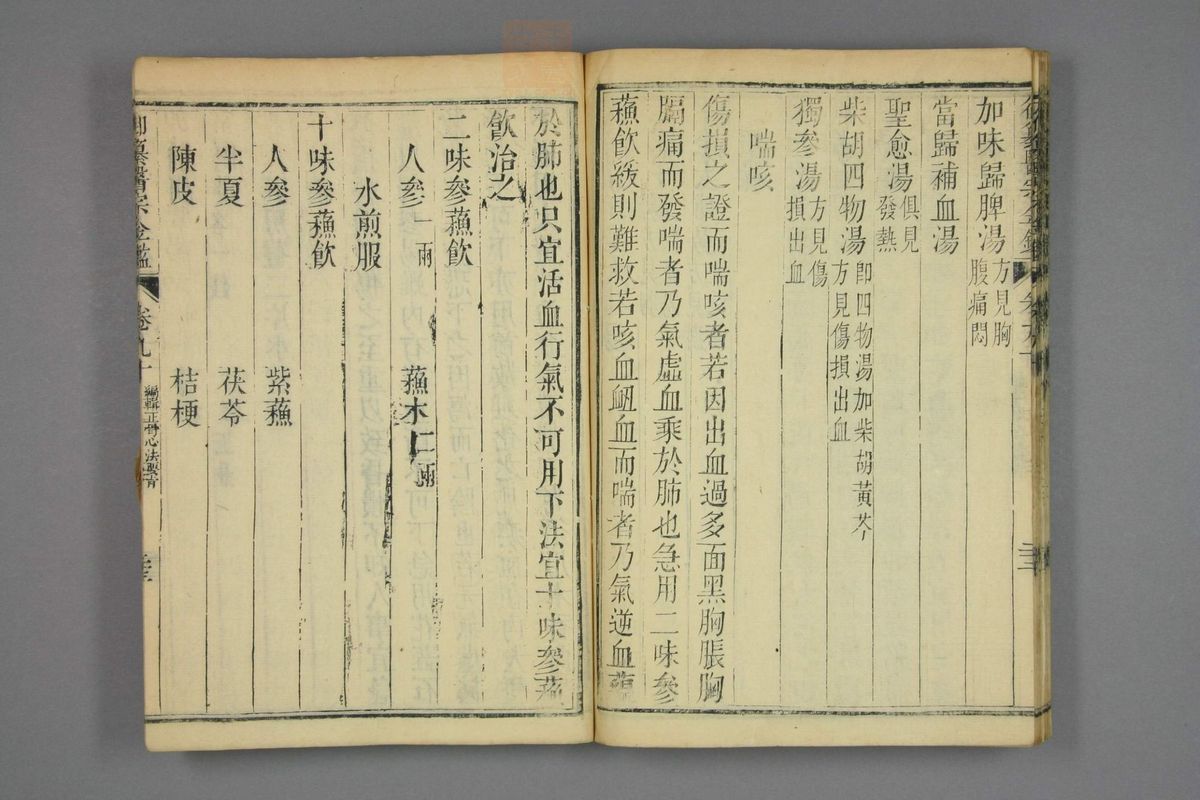 加味歸脾湯方見胸腹痛悶
當歸補血湯
聖愈湯俱見發熱
柴胡四物湯即四物湯加柴胡黃芩方見傷損出血
獨參湯方見傷損出血
喘咳
傷損之證而喘咳者若因出血過多面黑胸脹胸
膈痛而發喘者乃氣虛血乘於肺也急用二味參
蘓飲緩則難救若咳血衂血而喘者乃氣逆血蘊
於肺也只宜活血行氣不可用下法宜十味參蘓
飲治之
二味參蘓飲
人參一兩 蘓木二兩
水煎服
十味參蘓飲
人參 紫蘓
半夏 茯苓
陳皮 桔梗
御纂醫宗金鑑 卷九十 編輯正骨心法要旨